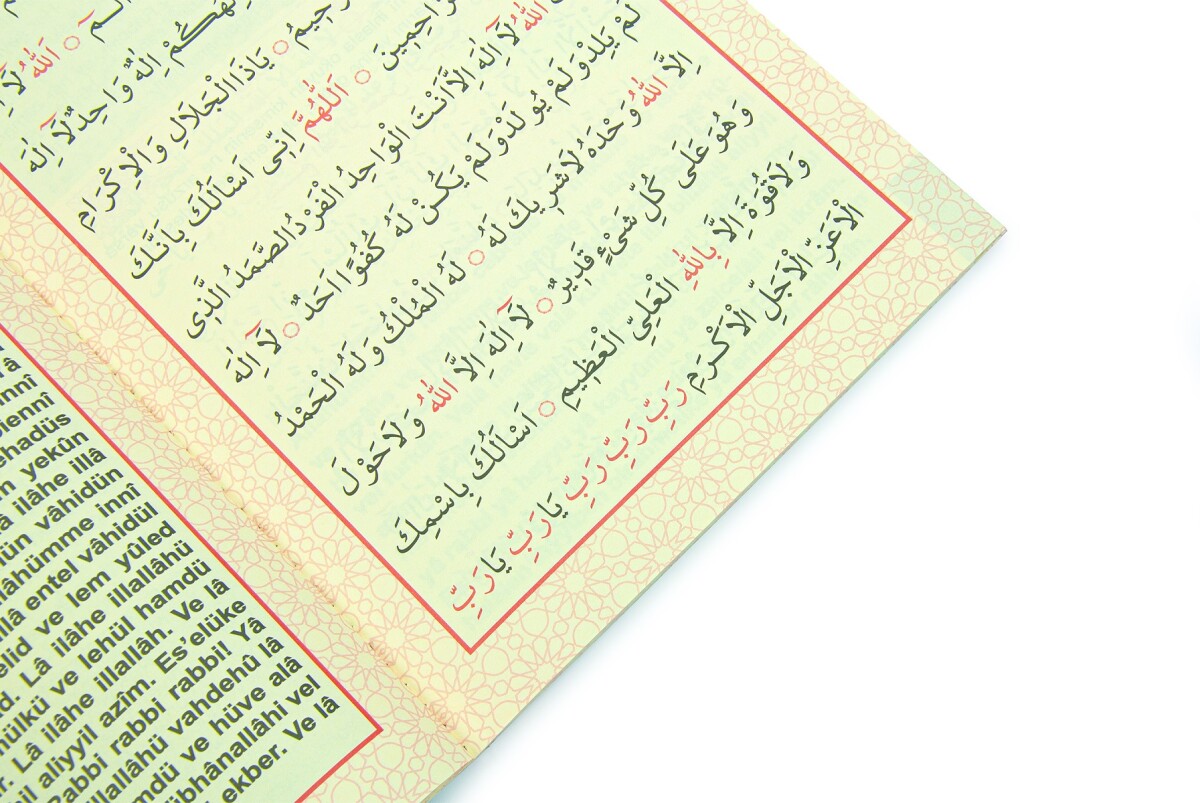 الٓمٓ ۝ اَللّٰهُ لَٓا
اِلٰهُكُمْ اِلٰهٌ وَاحِدٌ لَٓا اِلٰهَ
يَاذَا الْجَلَالِ وَالْاِكْرَامِ
۝ اَللّٰهُمَّ اِنِّى اَسْاَلُكَ بِاَنَّكَ
اللّٰهُ لَٓا اِلٰهَ اِلَّا اَنْتَ الْوَاحِدُ الْفَرْدُ الصَّمَدُ الَّذِى
لَمْ يَلِدْ وَلَمْ يُولَدْ وَلَمْ يَكُنْ لَهُ كُفُوًا اَحَدٌ ۝ لَٓا اِلٰهَ
اِلَّا اللّٰهُ وَحْدَهُ لَا شَرِيكَ لَهُ ۝ لَهُ الْمُلْكُ وَلَهُ الْحَمْدُ
وَهُوَ عَلَى كُلِّ شَىْءٍ قَدِيرٌ ۝ لَٓا اِلٰهَ اِلَّا اللّٰهُ وَلَا حَوْلَ
وَلَا قُوَّةَ اِلَّا بِاللّٰهِ الْعَلِىِّ الْعَظِيمِ ۝ اَسْاَلُكَ بِاسْمِكَ
الْاَعَزِّ الْاَجَلِّ الْاَكْرَمِ رَبِّ رَبِّ رَبِّ يَا رَبِّ يَا رَبِّ
yekûn
ilâhe illâ
vâhidün
innî
entel vâhidül
ve lem yûled
Lâ ilâhe illallâhü
ve lehül hamdü
Lâ ilâhe illallah. Ve lâ
aliyyil azîm. Es'elüke
Rabbi rabbi rabbi! Yâ
vahdehû lâ
ve hüve alâ
vel
ekber. Ve lâ